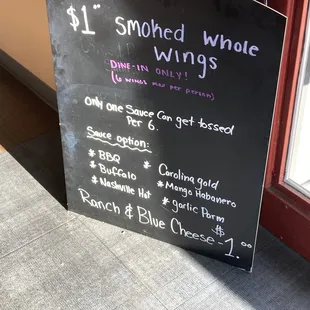 $1 Smoked Whole
Wings
DINE-IN ONLY!
(6 wings max per person)
Only one Sauce can get tossed
Per 6.
Sauce option:
* BBQ
* Buffalo
* Nashville Hot
* Carolina gold
* Mango Habanero
* garlic Parm
Ranch & Blue Cheese - $1.00